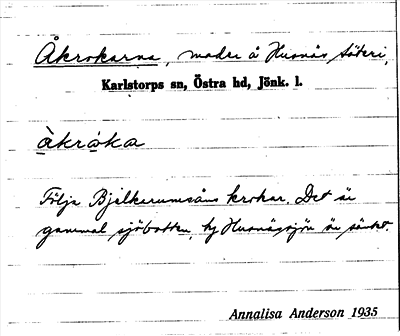 Åkrokarna, madre å Husnäs säteri,
Karlstorps sn, Östra hd, Jönk. l.
åkròka
Följa Bjälkerumsåns krokar. Det är
gammal sjöbotten, ty Husnäsjön är sänkt.
Annalisa Anderson 1935